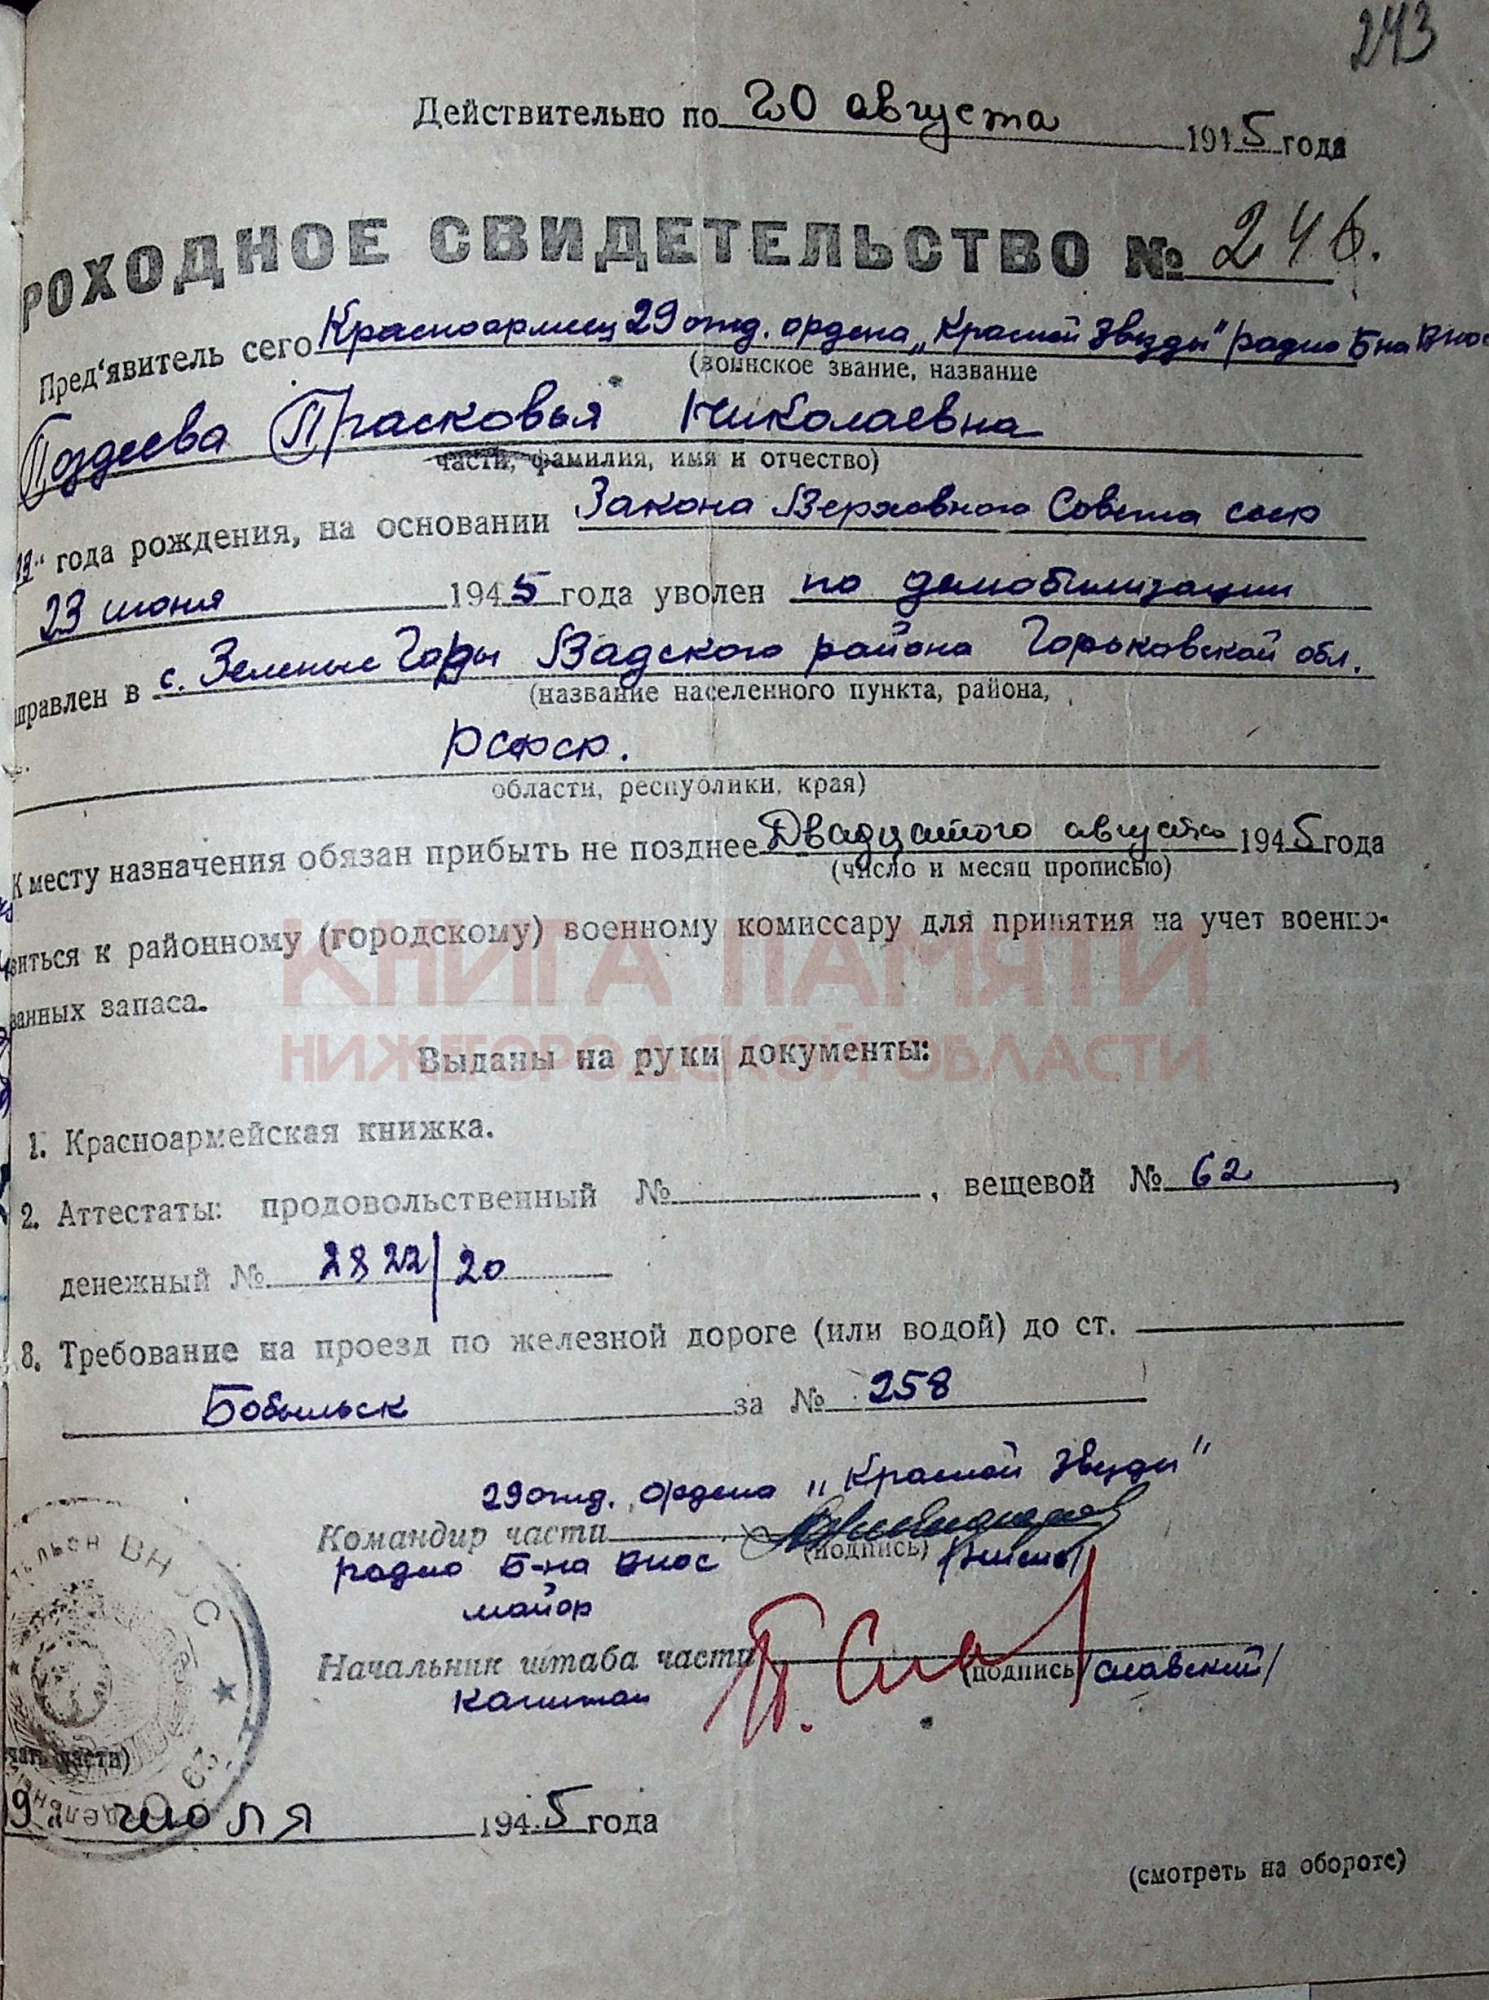 243
Действительно по 20 августа 1945 года
РОХОДНОЕ СВИДЕТЕЛЬСТВО № 246.
Пред'явитель сего Красноармеец 29 отд. ордена „Красной Звезды" радио Б-на Внос
(воинское звание, название
Поздеева Прасковья Николаевна
части, фамилия, имя и отчество)
года рождения, на основании Закона Верховного Совета ссср
23 июня 1945 года уволен по демобилизации
правлен в с. Зеленые Горы Вадского района Горьковской обл.
(название населенного пункта, района,
РСФСР.
области, республики, края)
К месту назначения обязан прибыть не позднее Двадцатого августа 1945 года
(число и месяц прописью)
виться к районному (городскому) военному комиссару для принятия на учет военно-
занных запаса.
КНИГА ПАМЯТИ
НИЖЕГОРОДСКОЙ ОБЛАСТИ
Выданы на руки документы:
1. Красноармейская книжка.
2. Аттестаты: продовольственный № , вещевой № 62,
денежный № 2822/20
3. Требование на проезд по железной дороге (или водой) до ст.
Бобыльск за № 258
29 отд. ордена „Красной Звезды"
Командир части
(подпись)
радио Б-на Внос
майор
Начальник штаба части П. Сла (подпись) /Славский/
капитан
ВНОС
чать части)
9 " июля 1945 года
(смотреть на обороте)